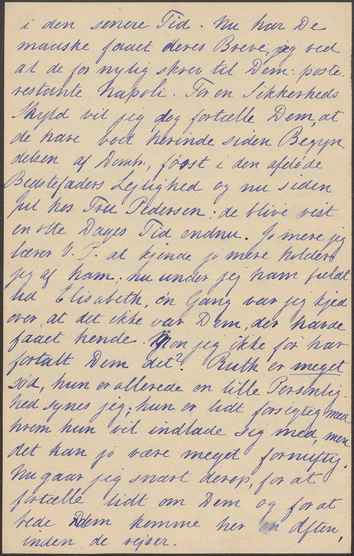 i den senere Tid. Nu har De
maaske faaet deres Breve, jeg ved
at de for nylig skrev til Dem: poste
restante Napoli. For en Sikkerheds
Skyld vil jeg dog fortælle Dem, at
de have væt herinde siden Begyn
delsen af Dcmbr, først i den afdøde
Bedstefaders Lejlighed og nu siden
hos Fru Pedersen: de blive vist
en otte Dages Tid endnu. Jo mere jeg
lærer V. P. at kjende jo mere holder
jeg af ham. nu under jeg ham fuldt
ud Elisabeth, en Gang var jeg kjed
over, at det ikke var Dem, der havde
faaet hende. Mon jeg ikke før har
fortalt Dem det? Ruth er meget
sød, hun er allerede en lille Personlig-
hed, synes jeg; hun er lidt forsigtig med
hvem hun vil indlade sig med, men
det kan jo være meget fornuftig.
Nu gaar jeg snart derop, for at
fortælle lidt om Dem og for at
bede dem komme her en Aften,
inden de rejser.